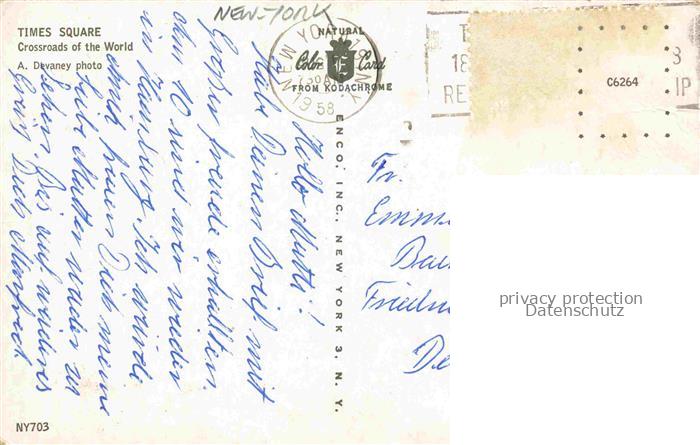 NEW-YORK
TIMES SQUARE
Crossroads of the World
A. Devaney photo
NATURAL
Color E Card
FROM KODACHROME
NEW YORK, N.Y.
730 AM
1958
18
RE
3
IP
C6264
ENCO, INC. NEW YORK 3, N. Y.
Hallo Mutti!
Habe Deinen Brief mit
Großer freude erhalten
am 10 sind wir wieder
in Hamburg. Ich würde
mich freuen Dich meine
liebe Mutter wieder zu
sehen. Bis auf weiteres
Grüßt Dich Manfred
Fr.
Emm
Bau
Fried
De
privacy protection
Datenschutz
NY703